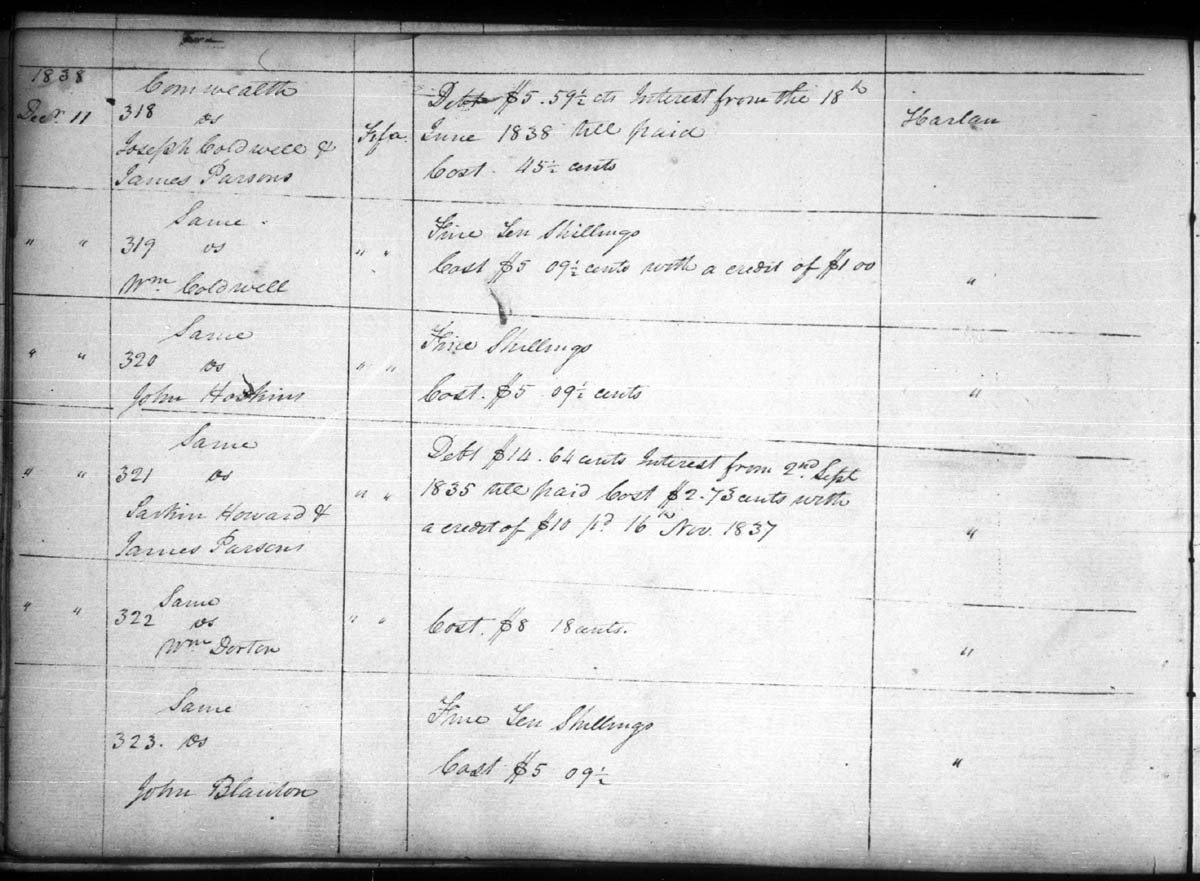 1838
Comwealth
Decr. 11 318 vs Fifa Debt $5.59½ cts Interest from the 18th Harlan
Joseph Coldwell & June 1838 till paid
James Parsons Cost. 45½ cents
Same Fine Ten Shillings
" " 319 vs " " Cost $5 09½ cents with a credit of $1 00 "
Wm Coldwell
Same Fine Shillings
" " 320 vs " "
John Hoskins Cost. $5 09½ cents "
Same Debt $14.64 cents Interest from 2nd Sept
" " 321 vs " " 1835 till paid Cost $2.73 cents with
Larkin Howard & a credit of $10 pd 16th Nov. 1837 "
James Parsons
Same
" " 322 vs " " Cost. $8 18 cents. "
Wm Dorton
Same Fine Ten Shillings
323. vs
Cost $5 09½ "
John Blanton